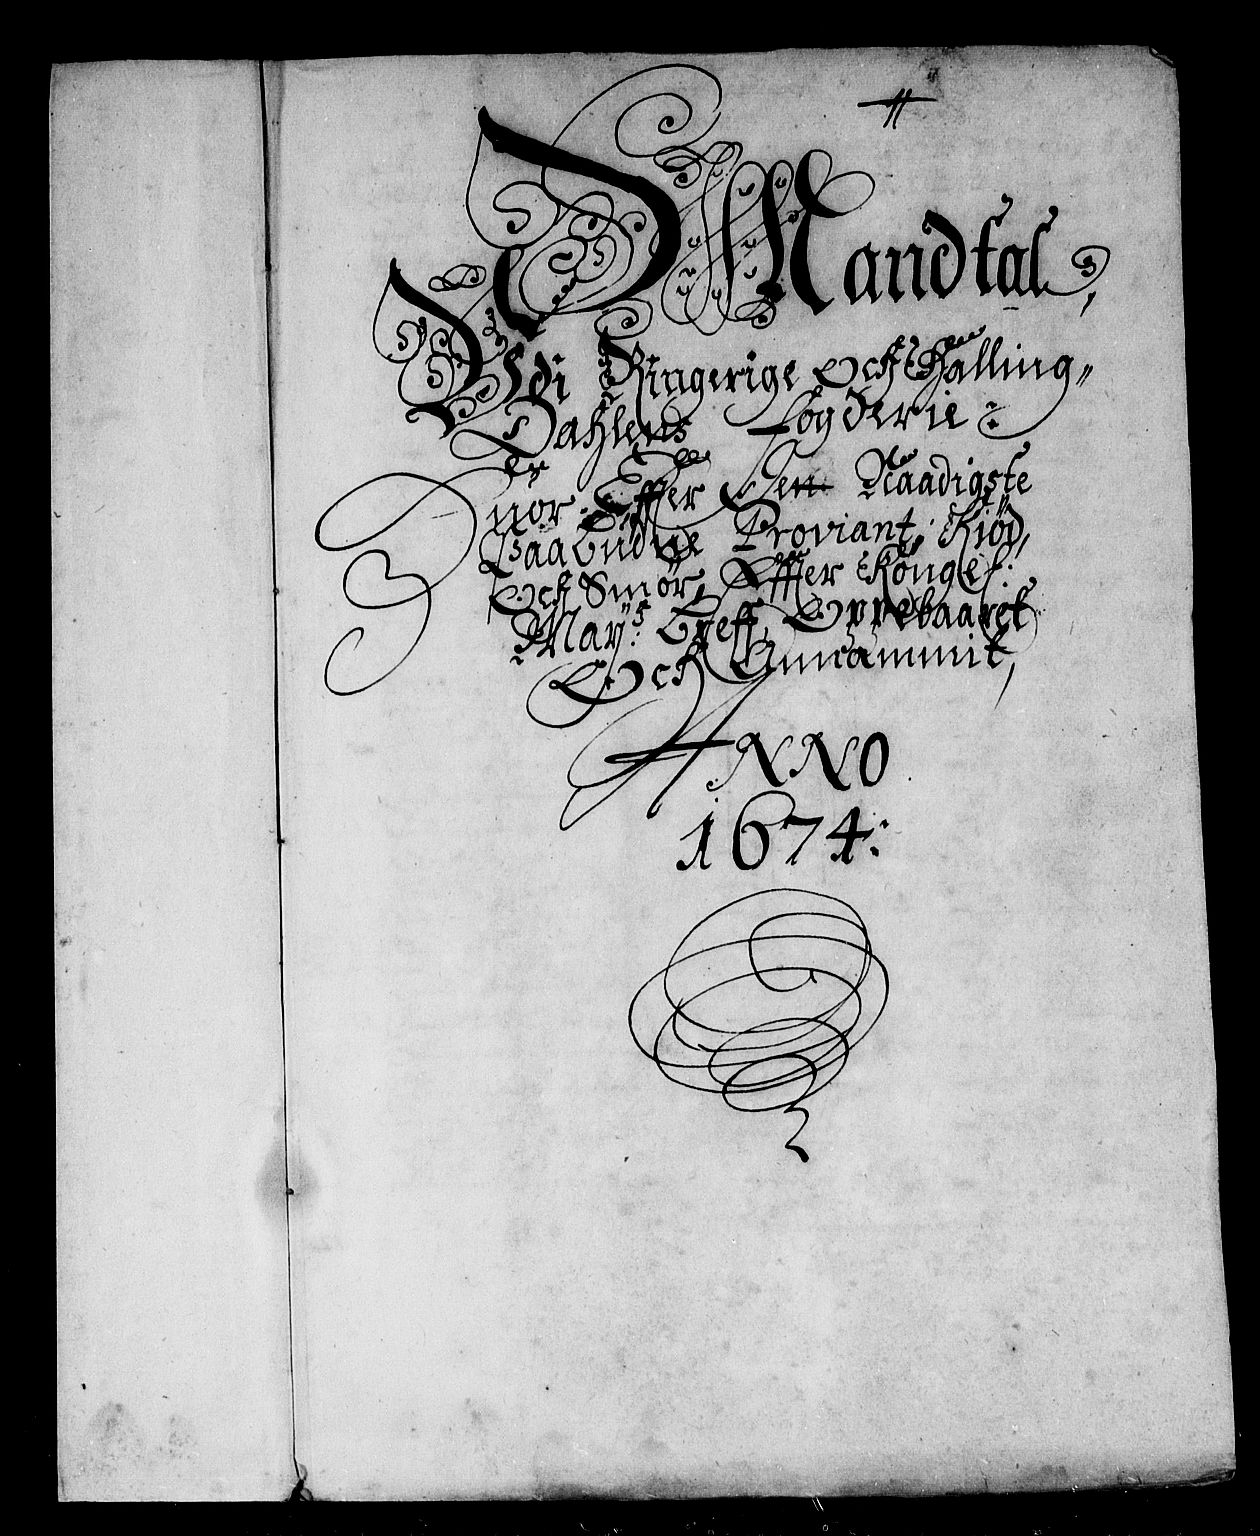 Mandtal,
Udi Ringerige Och Halling„
Dahlens Fogderie:
Huor Effter Den Naadigste
Paabudne Proviant, Kiød,
Och Smør, Effter Kongel:
Mayᵗˢ: Breff, Oppebaaret
Och Annammit,
ANNO
1674: